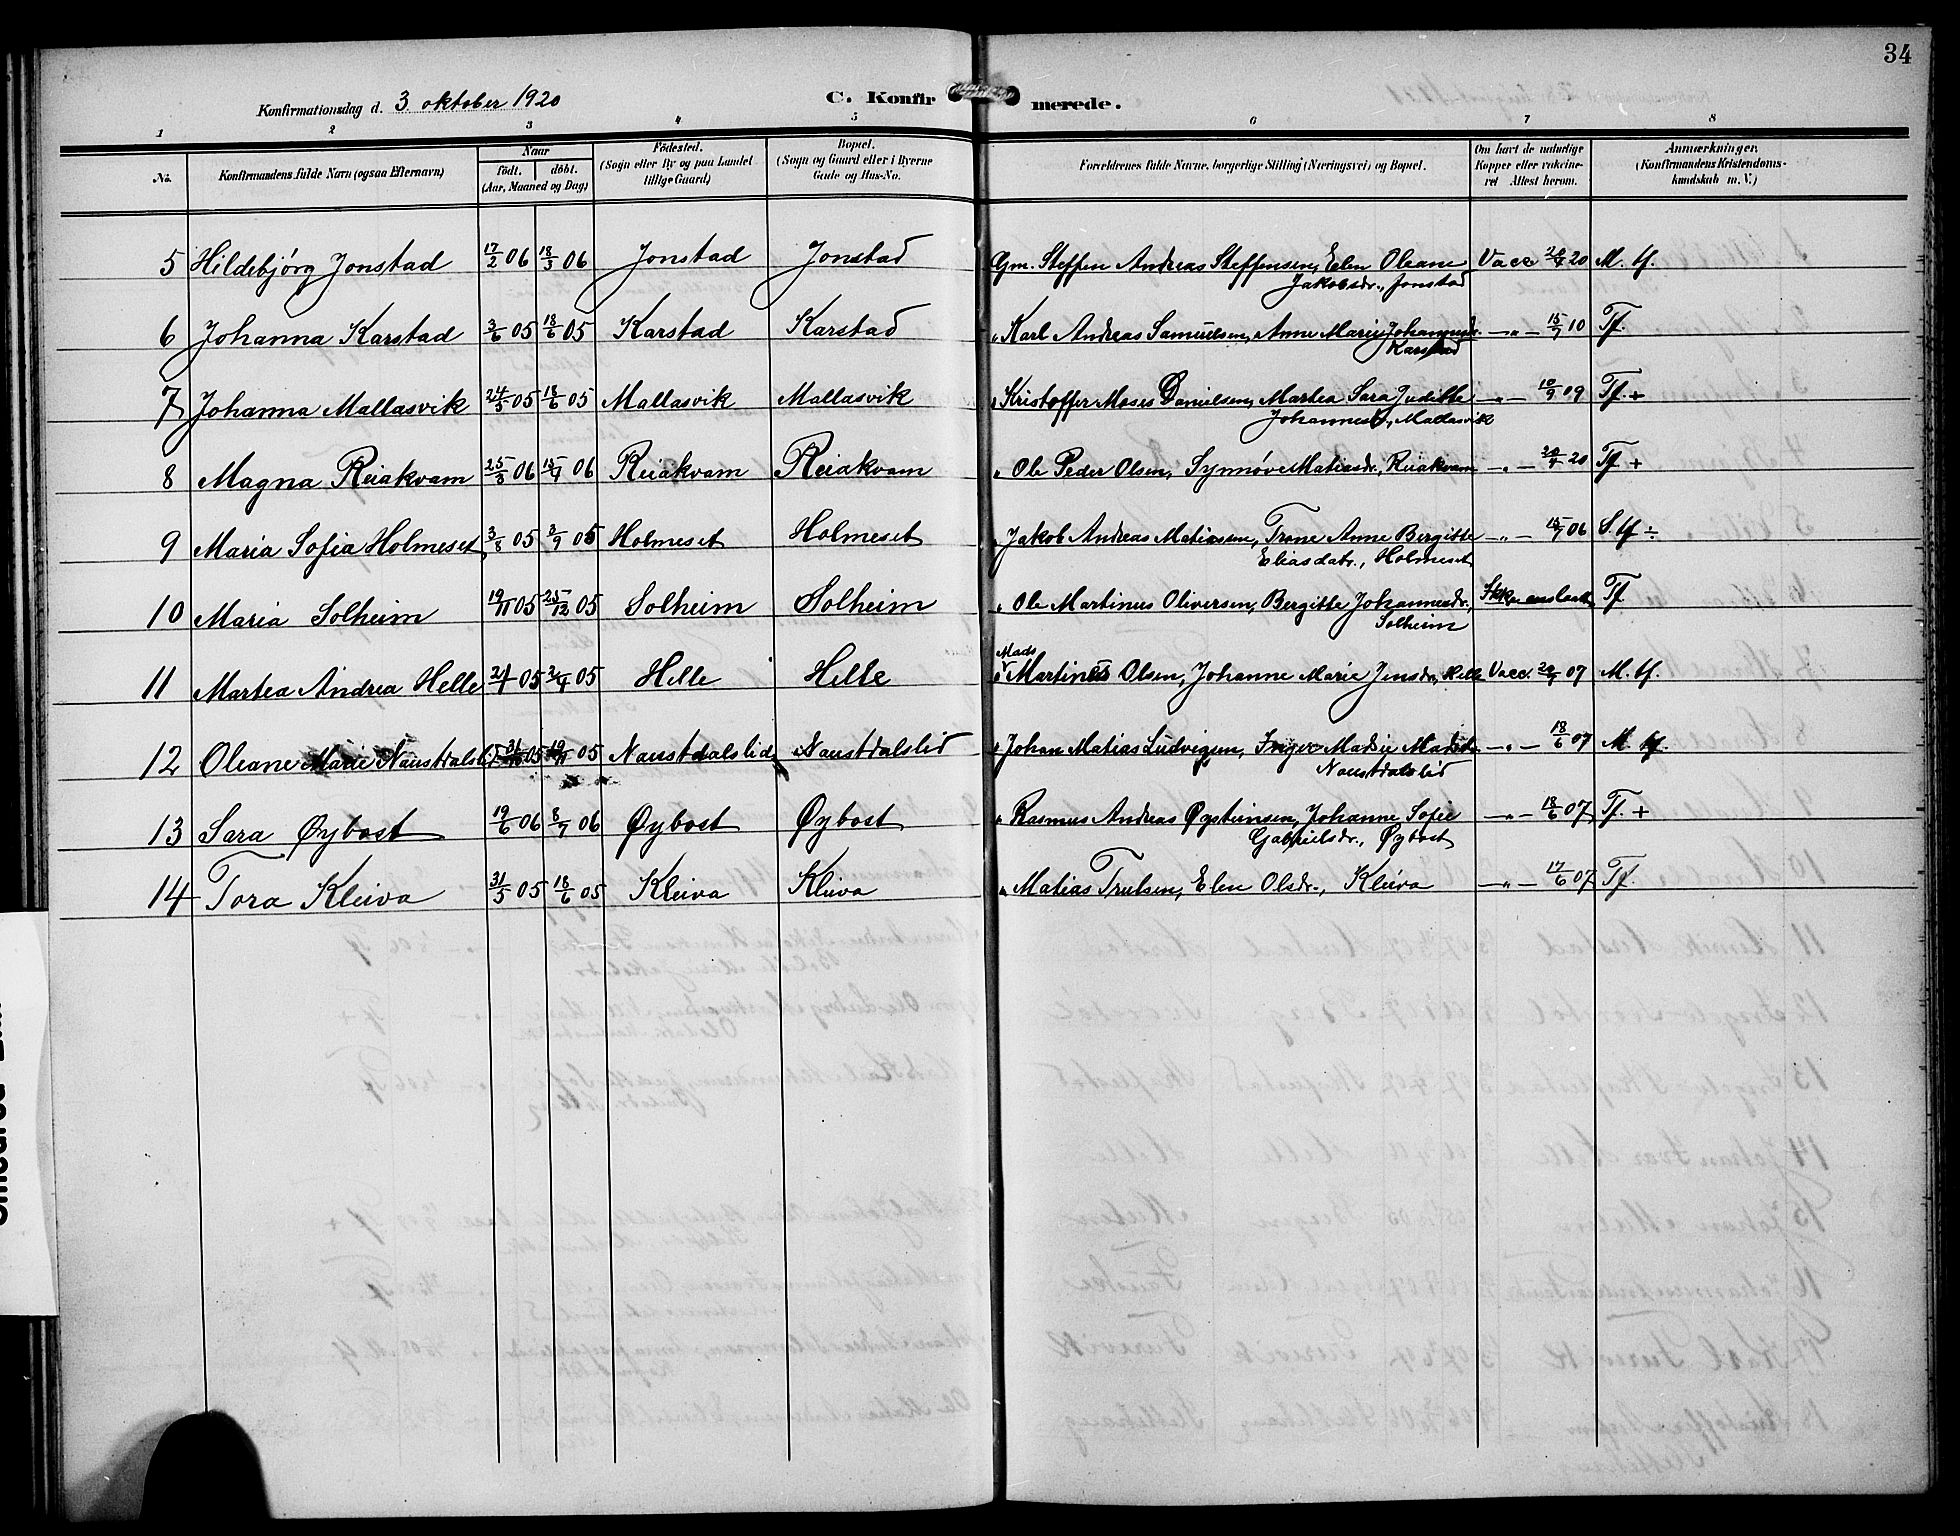 34
Konfirmationsdag d. 3 oktober 1920
C. Konfirmerede.
1 2 3 4 5 6 7 8
No. Konfirmandens fulde Navn (ogsaa Efternavn) Naar født. døbt. (Aar, Maaned og Dag) Fødested. (Sogn eller By og paa Landet tillige Gaard) Bopæl. (Sogn og Gaard eller i Byerne Gade og Hus-No. Forældrenes fulde Navne, borgerlige Stilling (Næringsvei) og Bopæl. Om havt de naturlige Kopper eller vakcineret Attest herom. Anmærkninger. (Konfirmandens Kristendomskundskab m. V.)
5 Hildebjørg Jonstad 17/2 06 18/3 06 Jonstad Jonstad Gm. Steffen Andreas Steffensen, Elen Oleane Vacc 20 M. tf.
Jakobsdr., Jonstad
6 Johanna Karstad 3/6 05 18/6 05 Karstad Karstad " Karl Andreas Samuelsen, Anne Marie Johannesdr. —"— 15/7 10 Tf.
Karstad
7 Johanna Mallasvik 24/5 05 18/6 05 Mallasvik Mallasvik " Kristoffer Moses Danielsen, Martea Sara Judithe —"— 10/9 09 Tf. +
Johannesd., Mallasvik
8 Magna Reiakvam 25/3 06 15/4 06 Reiakvam Reiakvam " Ole Peder Olsen, Synnøve Matiasdr., Reiakvam —"— 20 Tf +
9 Maria Sofia Holmeset 3/8 05 3/9 05 Holmeset Holmeset " Jakob Andreas Matiasen, Trone Anne Bergitte —"— 15/7 06 S. tf ÷
Eliasdatr., Holmeset
10 Maria Solheim 19/11 05 25/12 05 Solheim Solheim " Ole Martinus Oliversen, Bergitte Johannesdr., Tf.
Solheim
Mads
11 Martea Andrea Helle 05 05 Helle Helle " Martinus Olsen, Johanne Marie Jensdr., Helle Vacc. 07 M. tf.
12 Oleane Marie Naustdalslid 05 05 Naustdalslid Naustdalslid " Johan Matias Ludvigsen, Inger Marie —"— 18/6 07 M. tf.
Naustdalslid
13 Sara Øybost 19/6 06 8/7 06 Øybost Øybost " Rasmus Andreas Øysteinsen, Johanne Sofie —"— 18/6 07 Tf. +
Gabrielsdr., Øybost
14 Tora Kleiva 31/5 05 18/6 05 Kleiva Kleiva " Matias Trulsen, Elen Olsdr., Kleiva —"— 17/6 07 Tf.